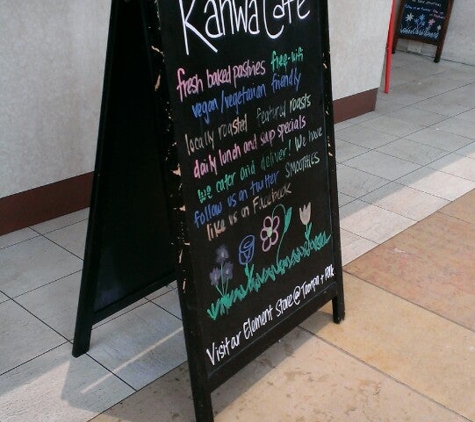 Kahwa Café
fresh baked pastries free wifi
vegan/vegetarian friendly
locally roasted Featured roasts
daily lunch and soup specials
we cater and deliver! We have
follow us on twitter SMOOTHIES
like us on Facebook
Visit our Element Store @ Tampa +